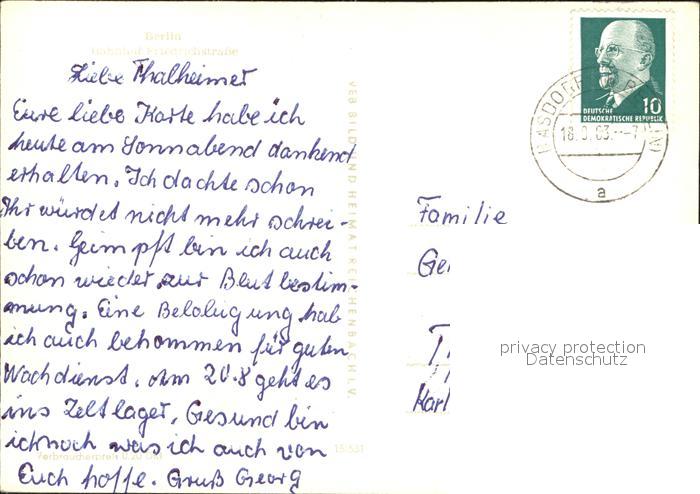 Berlin
Bahnhof Friedrichstraße
Liebe Thalheimer
Eure liebe Karte habe ich
heute am Sonnabend dankend
erhalten. Ich dachte schon
Ihr würdet nicht mehr schrei-
ben. Geimpft bin ich auch
schon wieder zur Blutbestim-
mung. Eine Belobigung hab
ich auch bekommen für guten
Wachdienst. Am 20.8 geht es
ins Zeltlager. Gesund bin
ich noch was ich auch von
Euch hoffe. Gruß Georg
Verbraucherpreis 0,20 DM
VEB BILD UND HEIMAT REICHENBACH I. V.
10
DEUTSCHE
DEMOKRATISCHE REPUBLIK
BASDORF
a
Familie
Ge
Karl
privacy protection
Datenschutz